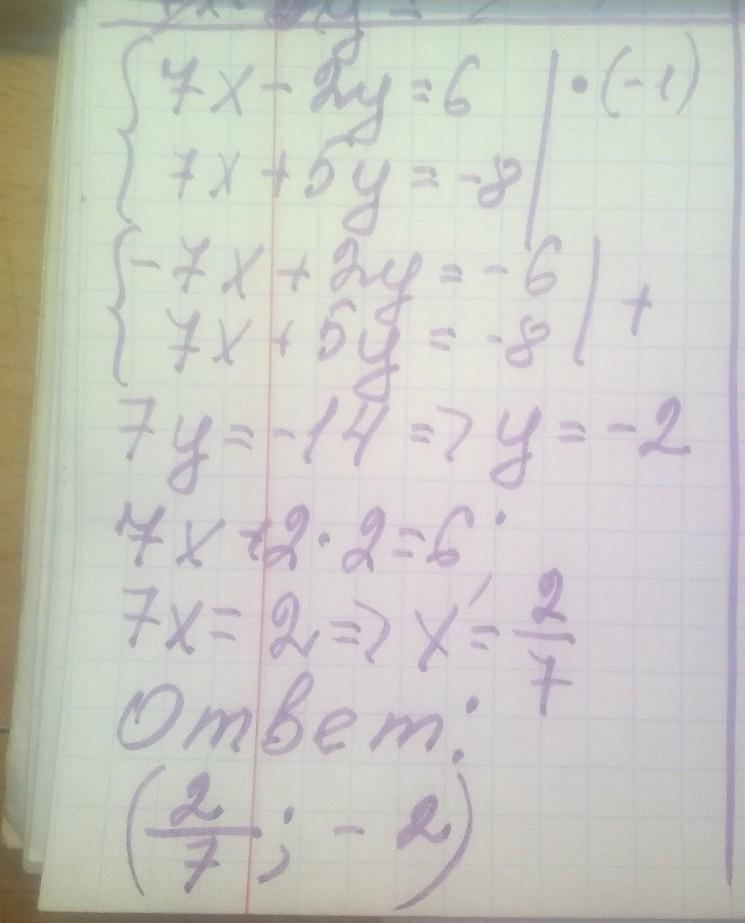 7x - 2y = 6 | · (-1)
7x + 5y = -8
-7x + 2y = -6 | +
7x + 5y = -8
7y = -14 => y = -2
7x + 2 · 2 = 6;
7x = 2 => x = 2/7
Ответ:
(2/7; -2)